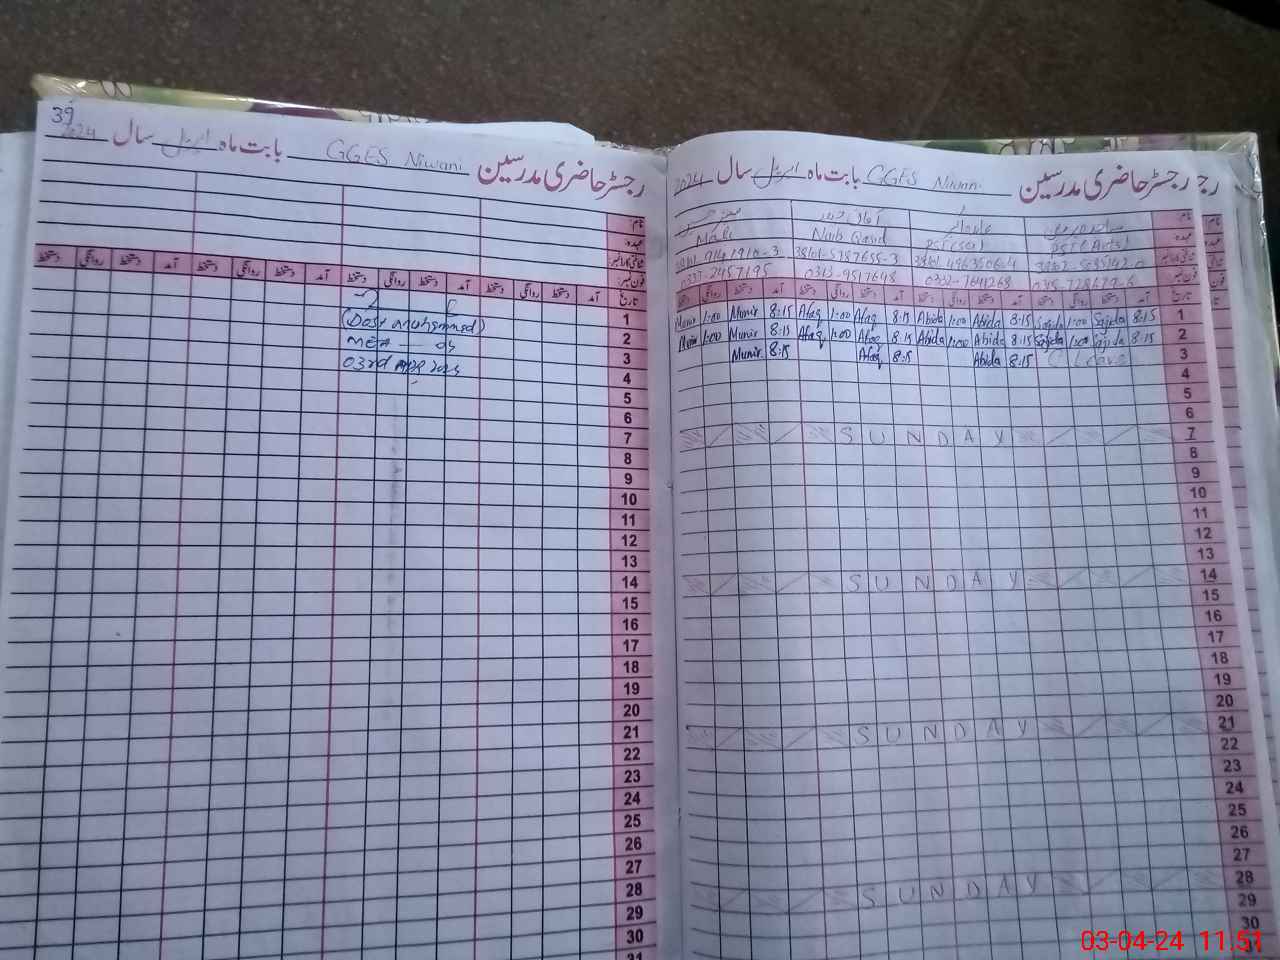 39
رجسٹر حاضری مدرسین GGES Niwani بابت ماہ اپریل سال 2024
نام
عہدہ
تاریخ آمد دستخط روانگی دستخط آمد دستخط روانگی دستخط آمد دستخط روانگی دستخط آمد دستخط روانگی دستخط
(Dost Muhammad)
MEA
03rd Apr 2024
1
2
3
4
5
6
7
8
9
10
11
12
13
14
15
16
17
18
19
20
21
22
23
24
25
26
27
28
29
30
31
رجسٹر حاضری مدرسین GGES Niwani بابت ماہ اپریل سال 2024
نام
عہدہ PST (Arts) PST (Sci) Naib Qasid Mali
فون نمبر
تاریخ آمد دستخط روانگی دستخط آمد دستخط روانگی دستخط آمد دستخط روانگی دستخط آمد دستخط روانگی دستخط
Munir 1:00 Munir 8:15 Afaq 1:00 Afaq 8:15 Abida 1:00 Abida 8:15 Sajida 1:00 Sajida 8:15 1
Munir 1:00 Munir 8:15 Afaq 1:00 Afaq 8:15 Abida 1:00 Abida 8:15 Sajida 1:00 Sajida 8:15 2
Munir 8:15 Afaq 8:15 Abida 8:15 C Leave 3
4
5
6
SUNDAY 7
8
9
10
11
12
13
SUNDAY 14
15
16
17
18
19
20
SUNDAY 21
22
23
24
25
26
27
SUNDAY 28
29
30
31
03-04-24 11:51